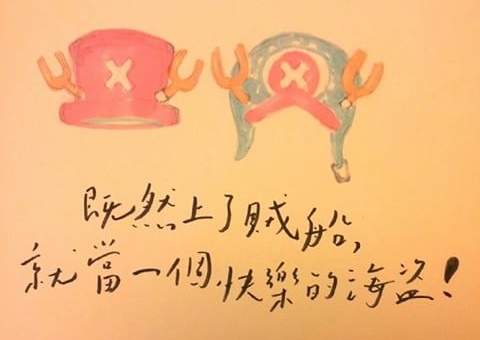 既然上了賊船,
就當一個快樂的海盜!